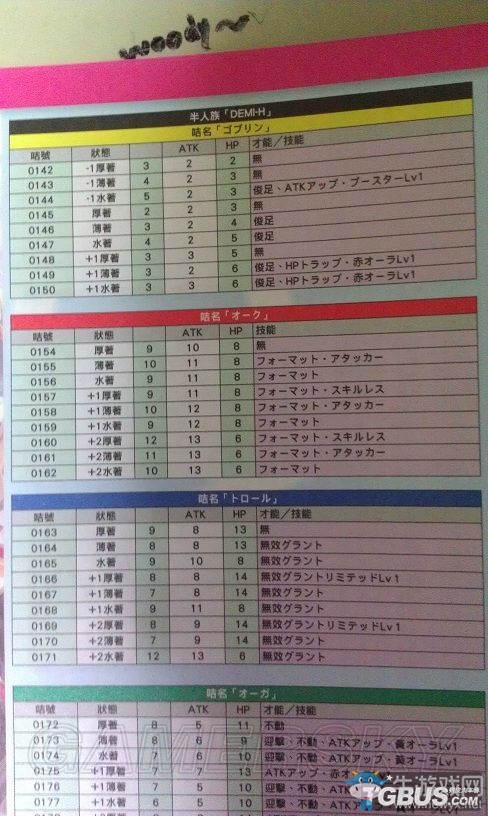 woody~
半人族「DEMI-H」
咭名「ゴブリン」
咭號 狀態 ATK HP 才能／技能
0142 -1厚著 3 2 2 無
0143 -1薄著 4 2 3 無
0144 -1水著 5 2 3 俊足、ATKアップ・ブースターLv1
0145 厚著 2 2 3 無
0146 薄著 3 2 4 俊足
0147 水著 4 2 5 俊足
0148 +1厚著 3 3 5 無
0149 +1薄著 3 2 6 俊足、HPトラップ・赤オーラLv1
0150 +1水著 3 3 6 俊足、HPトラップ・赤オーラLv1
咭名「オーク」
咭號 狀態 ATK HP 技能
0154 厚著 9 10 8 無
0155 薄著 10 11 8 フォーマット・アタッカー
0156 水著 9 11 8 フォーマット
0157 +1厚著 9 11 8 フォーマット・スキルレス
0158 +1薄著 10 12 8 フォーマット・アタッカー
0159 +1水著 9 12 8 フォーマット
0160 +2厚著 12 13 6 フォーマット・スキルレス
0161 +2薄著 11 13 6 フォーマット・アタッカー
0162 +2水著 10 13 6 フォーマット
咭名「トロール」
咭號 狀態 ATK HP 才能／技能
0163 厚著 9 8 13 無
0164 薄著 8 8 13 無效グラント
0165 水著 9 10 8 無效グラント
0166 +1厚著 8 8 14 無效グラントリミテッドLv1
0167 +1薄著 7 8 14 無效グラント
0168 +1水著 9 11 8 無效グラント
0169 +2厚著 8 9 14 無效グラントリミテッドLv1
0170 +2薄著 7 9 14 無效グラント
0171 +2水著 12 13 6 無效グラント
咭名「オーガ」
咭號 狀態 ATK HP 才能／技能
0172 厚著 8 5 11 不動
0173 薄著 8 6 9 迎擊、不動、ATKアップ・黃オーラLv1
0174 水著 7 6 10 迎擊、不動、ATKアップ・黃オーラLv1
0175 +1厚著 7 7 13 ATKアップ・赤オー
0176 +1薄著 7 5 10 迎擊、不動・ATK
0177 +1水著 6 5 10 迎擊、不動・ATK
TGBUS.com